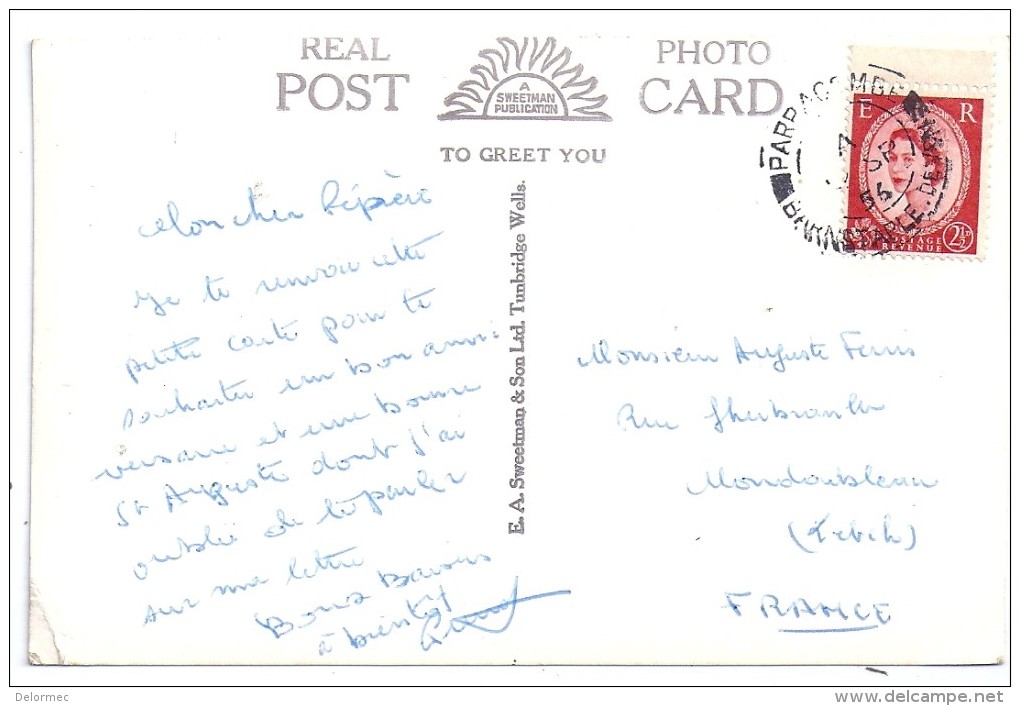 REAL PHOTO
POST CARD
A
SWEETMAN
PUBLICATION
TO GREET YOU
PARRACOMBE
BARNSTAPLE. DEVON
E R
POSTAGE
REVENUE
2½D
E. A. Sweetman & Son Ltd. Tunbridge Wells.
Mon cher Pépère
Je te envoie cette
petite carte pour te
souhaiter un bon anni-
versaire et une bonne
St Auguste dont j'ai
oublié de te parler
sur ma lettre
Bons Baisers
à bientôt
Monsieur Auguste
Rue
Mondoubleau
FRANCE
Delormec
delcampe.net